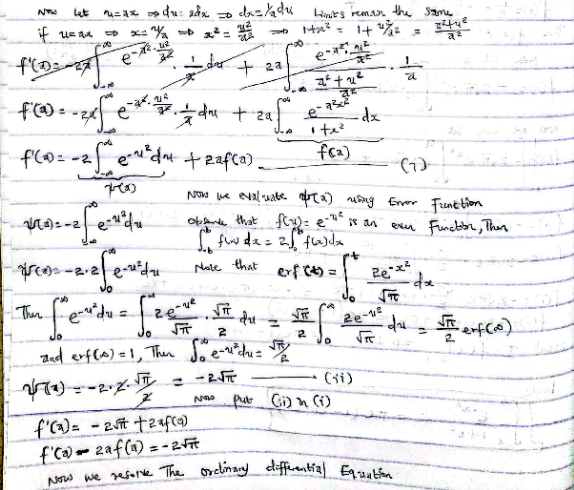 Now let u=ax ⇒ du = adx ⇒ dx = 1/a du Limits remain the same
if u=ax ⇒ x = u/a ⇒ x² = u²/a² ⇒ 1+x² = 1 + u²/a² = (a²+u²)/a²
f'(a) = -2a ∫_{-∞}^{∞} e^{-a²·u²/a²} · 1/a du + 2a ∫_{-∞}^{∞} e^{-a²·u²/a²} / ((a²+u²)/a²) · 1/a
f'(a) = -2a ∫_{-∞}^{∞} e^{-a²·u²/a²} · 1/a du + 2a ∫_{-∞}^{∞} e^{-a²x²}/(1+x²) dx
f'(a) = -2 ∫_{-∞}^{∞} e^{-u²} du + 2af(a) f(a) (i)
ψ(a) Now we evaluate ψ(a) using Error Function
ψ(a) = -2 ∫_{-∞}^{∞} e^{-u²} du observe that f(u) = e^{-u²} is an even Function, Then
∫_{-b}^{b} f(x) dx = 2∫_{0}^{b} f(x) dx
ψ(a) = -2·2 ∫_{0}^{∞} e^{-u²} du Note that erf(t) = ∫_{0}^{t} 2e^{-x²}/√π dx
Then ∫_{0}^{∞} e^{-u²} du = ∫_{0}^{∞} 2e^{-u²}/√π · √π/2 du = √π/2 ∫_{0}^{∞} 2e^{-u²}/√π du = √π/2 erf(∞)
and erf(∞) = 1, Then ∫_{0}^{∞} e^{-u²} du = √π/2
ψ(a) = -2·2·√π/2 = -2√π (ii)
Now put (ii) in (i)
f'(a) = -2√π + 2af(a)
f'(a) - 2af(a) = -2√π
Now we resolve The ordinary differential Equation